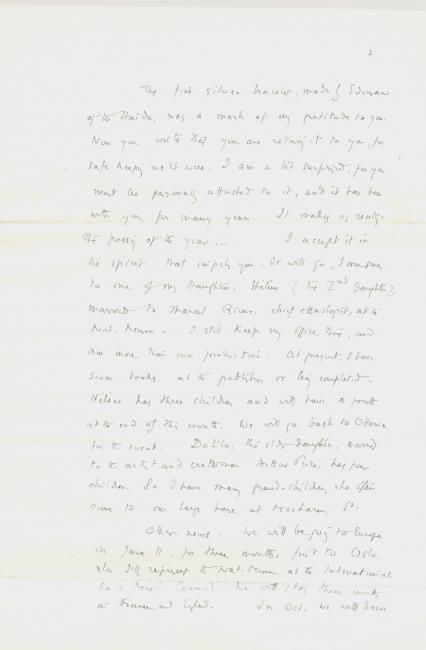 2
The fine silver bracelet, made by Edenshaw
of the Haida, was a mark of my gratitude to you.
Now you write that you are it to you, for
safe keeping as it were. I am a bit surprised, for you
must be personally attached to it, and it has been
with you for many years. It makes us realize
the passing of the years ... I accept it in
the spirit that you. It will go, I assume,
to one of my daughters, Hélène (the 2nd daughter),
married to Marcel Rioux, chief ethnologist, at the
Nat. Museum. I still keep my office there, and
am more than ever productive. At present, I have
seven books at the publishers or being completed.
Hélène has three children and will have a fourth
at the end of this month. We will go back to Ottawa
for the event. Dalila, the elder daughter, married
to the artist and craftsman Arthur Price, has four
children. So I have many grand-children, who often
come to our large house at MacLaren St.
Other news: we will be going to Europe
on June 11, for three months, first to Oslo.
I'll represent the Nat. Museum at the International
Folk Music Council. We will stay three months
in France and England. In Oct. we will